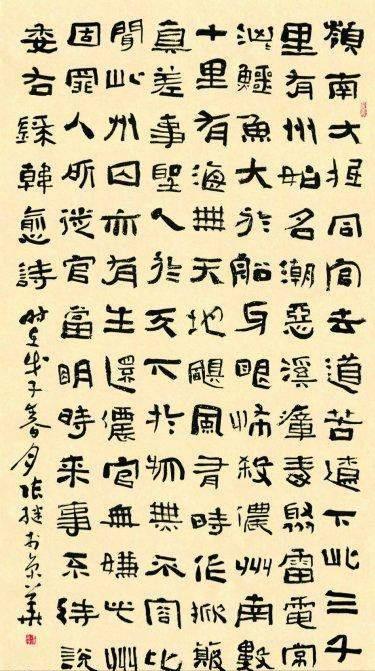 嶺南大抵同官去道苦遼下此三千
里有州始名潮惡溪瘴毒聚雷電常
洶鱷魚大於船牙眼怖殺儂州南數
十里有海無天地颶風有時作掀簸
真差事聖人於天下於物無不容比
聞此州囚亦有生還儂官無嫌此州
固罪人所徙官當明時來事不待說
委右錄韓愈詩 時在戊子春月張継於京華